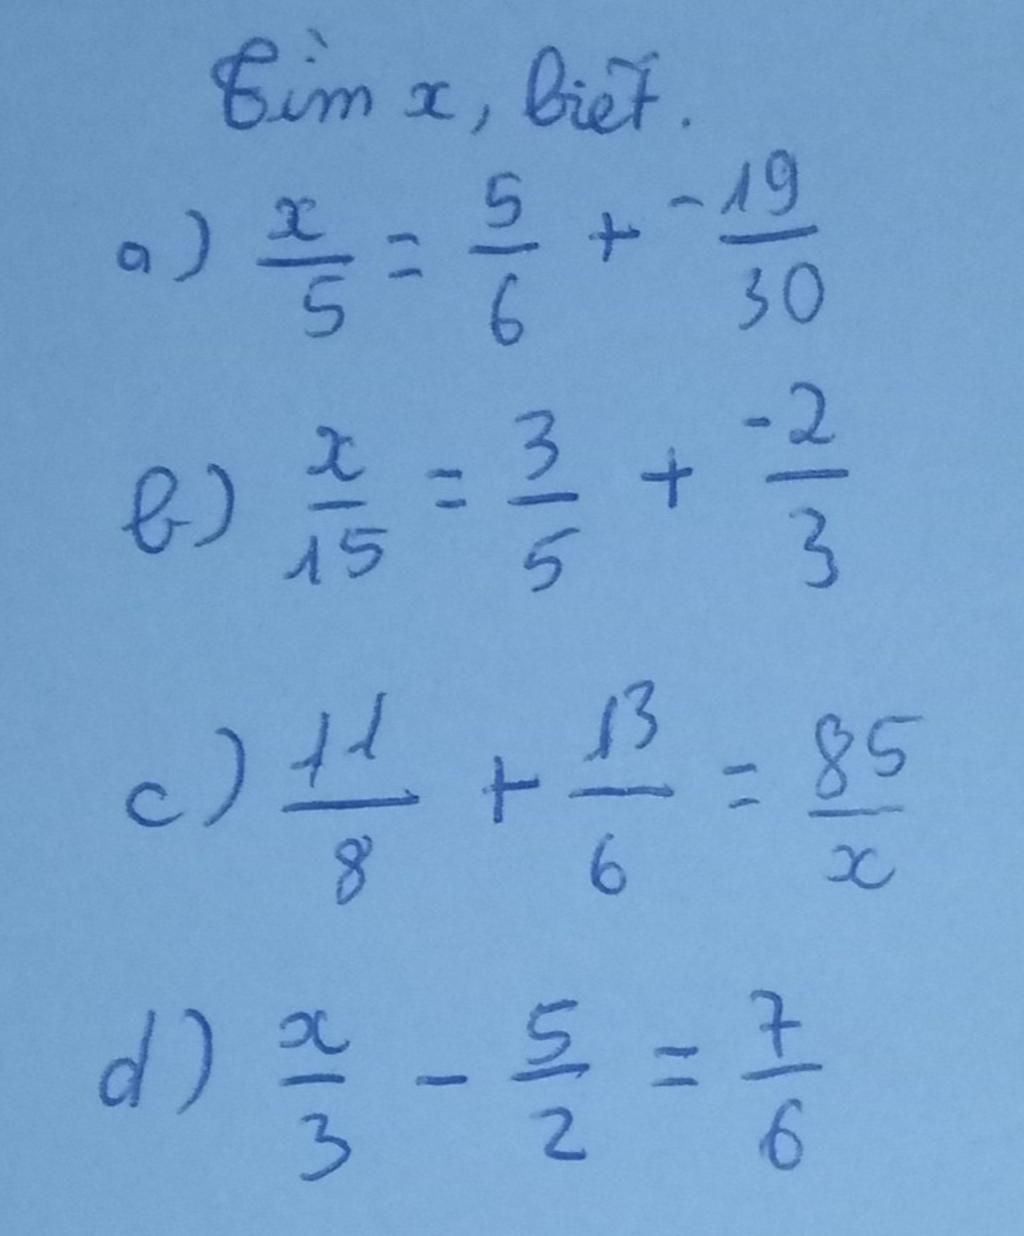 Tìm x, biết.
a) x/5 = 5/6 + -19/30
b) x/15 = 3/5 + -2/3
c) 11/8 + 13/6 = 85/x
d) x/3 - 5/2 = 7/6